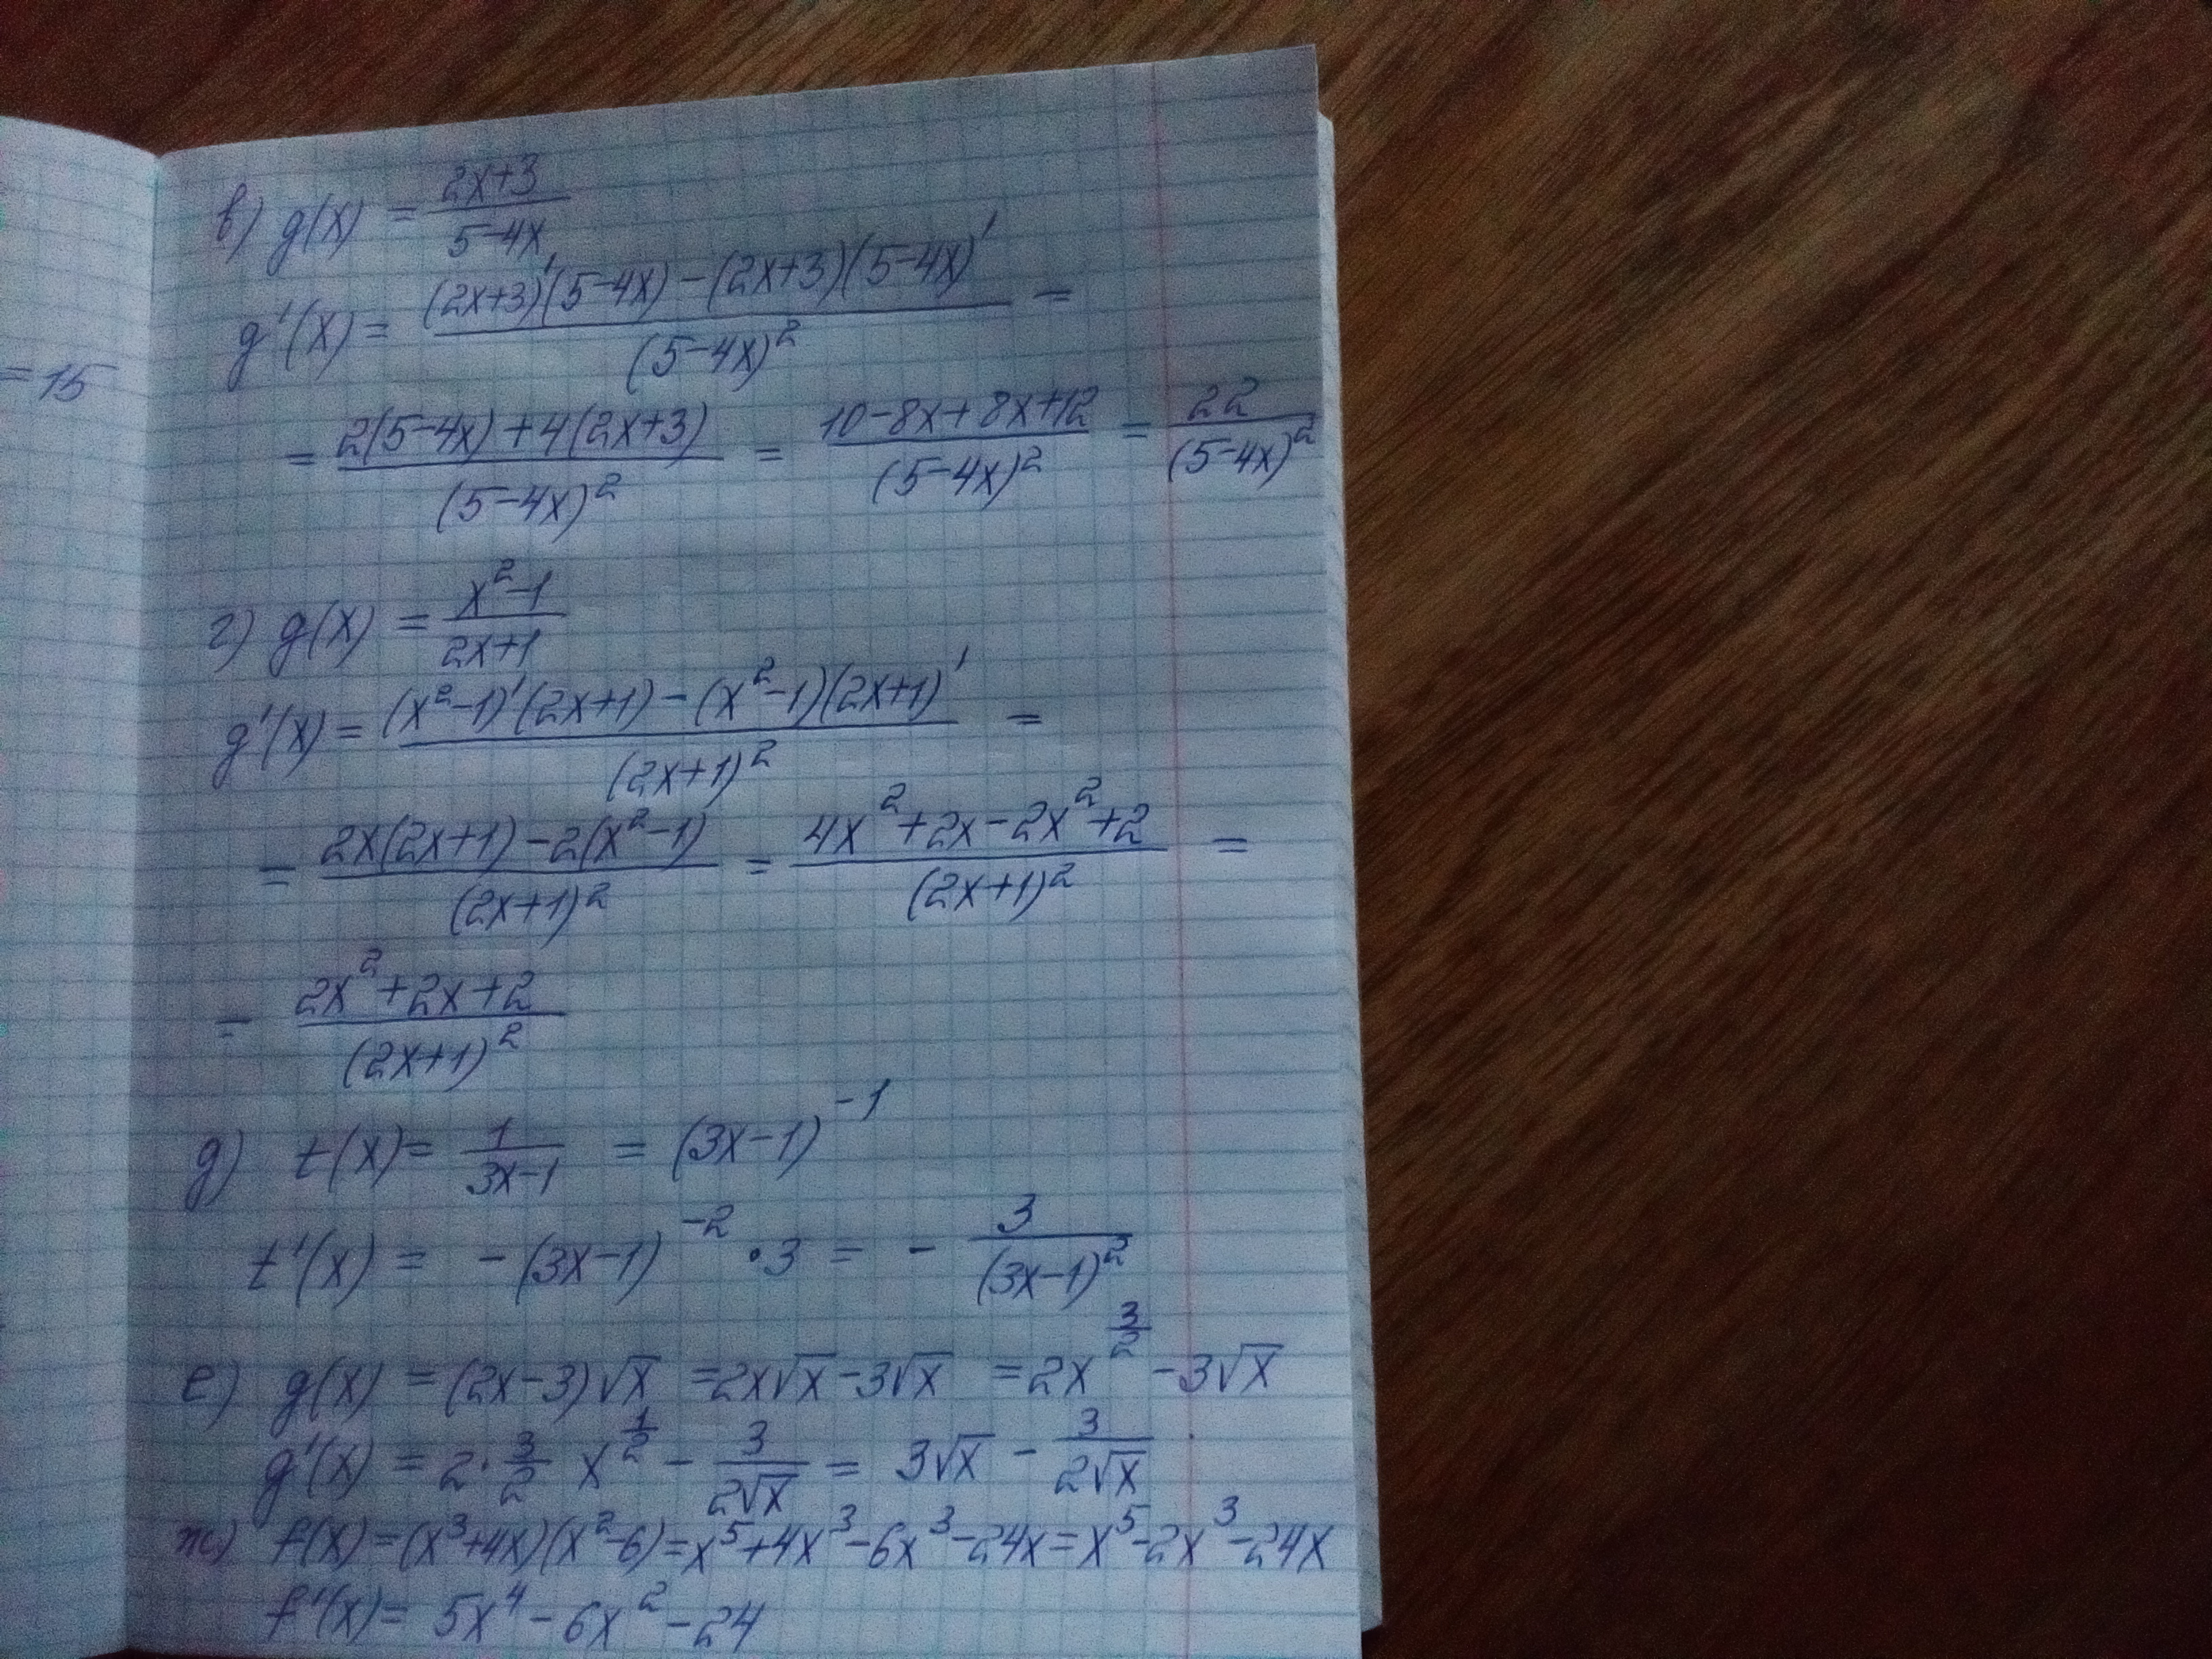 = 15
в) g(x) = \frac{2x+3}{5-4x}
g'(x) = \frac{(2x+3)'(5-4x)-(2x+3)(5-4x)'}{(5-4x)^2} =
= \frac{2(5-4x)+4(2x+3)}{(5-4x)^2} = \frac{10-8x+8x+12}{(5-4x)^2} = \frac{22}{(5-4x)^2}
г) g(x) = \frac{x^2-1}{2x+1}
g'(x) = \frac{(x^2-1)'(2x+1)-(x^2-1)(2x+1)'}{(2x+1)^2} =
= \frac{2x(2x+1)-2(x^2-1)}{(2x+1)^2} = \frac{4x^2+2x-2x^2+2}{(2x+1)^2} =
= \frac{2x^2+2x+2}{(2x+1)^2}
д) t(x) = \frac{1}{3x-1} = (3x-1)^{-1}
t'(x) = -(3x-1)^{-2} · 3 = - \frac{3}{(3x-1)^2}
е) g(x) = (2x-3)√x = 2x√x - 3√x = 2x^{\frac{3}{2}} - 3√x
g'(x) = 2 · \frac{3}{2} x^{\frac{1}{2}} - \frac{3}{2√x} = 3√x - \frac{3}{2√x}
ж) f(x) = (x^3+4x)(x^2-6) = x^5+4x^3-6x^3-24x = x^5-2x^3-24x
f'(x) = 5x^4 - 6x^2 - 24